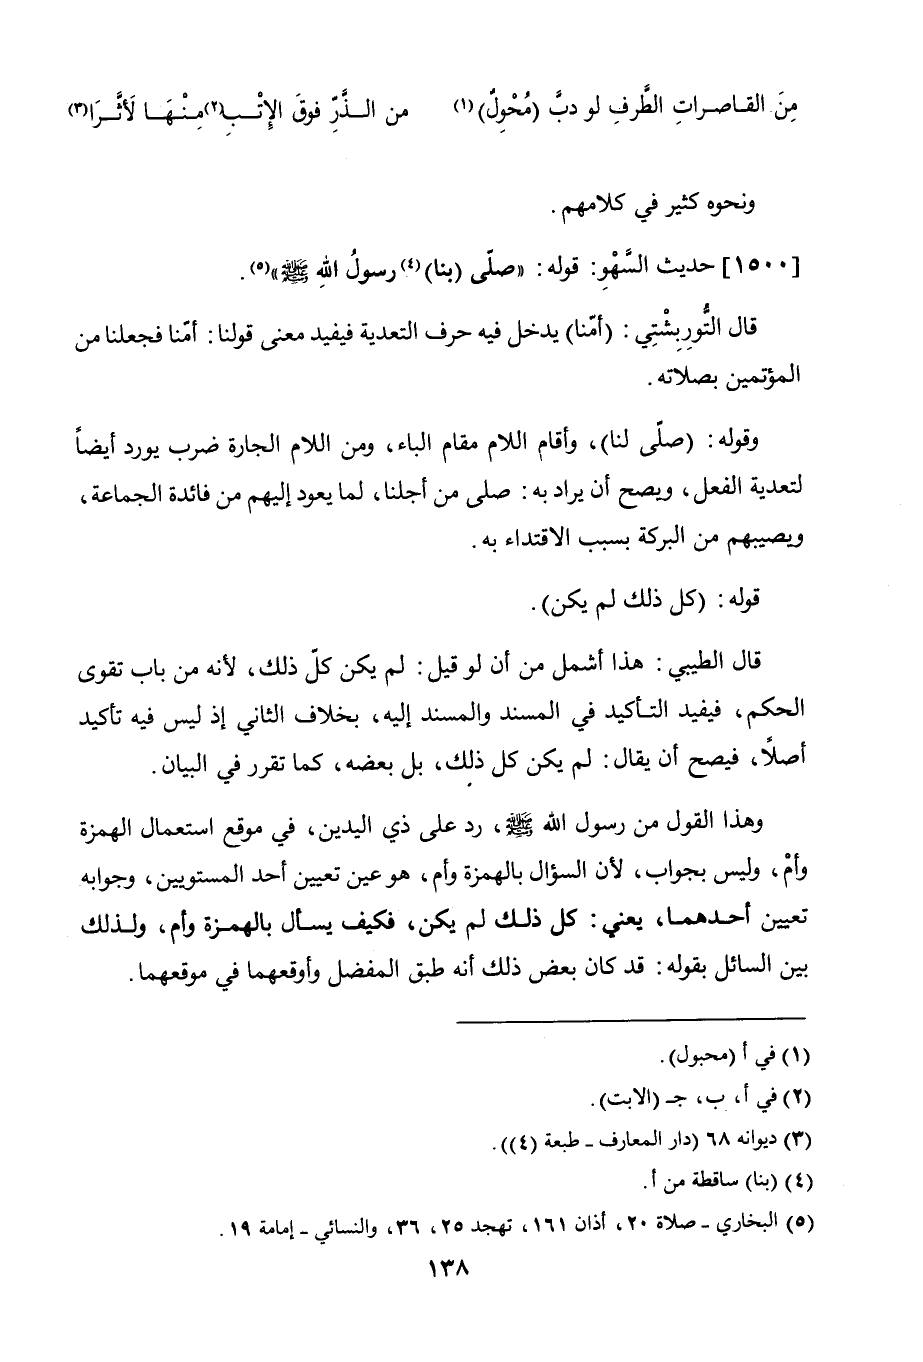 مِنَ القـاصـراتِ الطَّرفِ لو دبَّ (مُحْوِلٌ)(١) من الــذَّرِّ فوقَ الإتْــبِ(٢) مِـنْـهَــا لَأثَّــرَا(٣)
ونحوه كثير في كلامهم.
[١٥٠٠] حديث السَّهْوِ: قوله: «صلّى (بنا)(٤) رسولُ اللهِ ﷺ»(٥).
قال التُّورِبِشْتِي: (أمّنا) يدخل فيه حرف التعدية فيفيد معنى قولنا: أمّنا فجعلنا من
المؤتمين بصلاته.
وقوله: (صلّى لنا)، وأقام اللام مقام الباء، ومن اللام الجارة ضرب يورد أيضاً
لتعدية الفعل، ويصح أن يراد به: صلى من أجلنا، لما يعود إليهم من فائدة الجماعة،
ويصيبهم من البركة بسبب الاقتداء به.
قوله: (كل ذلك لم يكن).
قال الطيبي: هذا أشمل من أن لو قيل: لم يكن كلّ ذلك، لأنه من باب تقوى
الحكم، فيفيد التـأكيد في المسند والمسند إليه، بخلاف الثاني إذ ليس فيه تأكيد
أصلًا، فيصح أن يقال: لم يكن كل ذلك، بل بعضه، كما تقرر في البيان.
وهذا القول من رسول الله ﷺ، رد على ذي اليدين، في موقع استعمال الهمزة
وأمْ، وليس بجواب، لأن السؤال بالهمزة وأم، هو عين تعيين أحد المستويين، وجوابه
تعيين أحـدهمـا، يعني: كل ذلـك لم يكن، فكيف يسـأل بالهمـزة وأم، ولـذلك
بين السائل بقوله: قد كان بعض ذلك أنه طبق المفضل وأوقعهما في موقعهما.
(١) في أ (محبول).
(٢) في أ، ب، جـ (الابت).
(٣) ديوانه ٦٨ (دار المعارف ـ طبعة (٤)).
(٤) (بنا) ساقطة من أ.
(٥) البخاري ـ صلاة ٢٠، أذان ١٦١، تهجد ٢٥، ٣٦، والنسائي ـ إمامة ١٩.
١٣٨